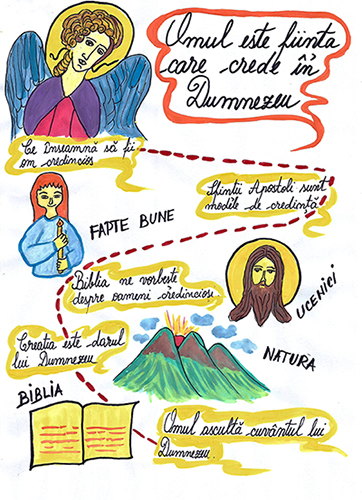 Omul este ființa
care crede în
Dumnezeu
Ce înseamnă să fii
om credincios
Sfinții Apostoli sunt
modele de credință
FAPTE BUNE
Biblia ne vorbește
despre oameni credincioși
UCENICI
Creația este darul
lui Dumnezeu
NATURA
BIBLIA
Omul ascultă cuvântul lui
Dumnezeu.